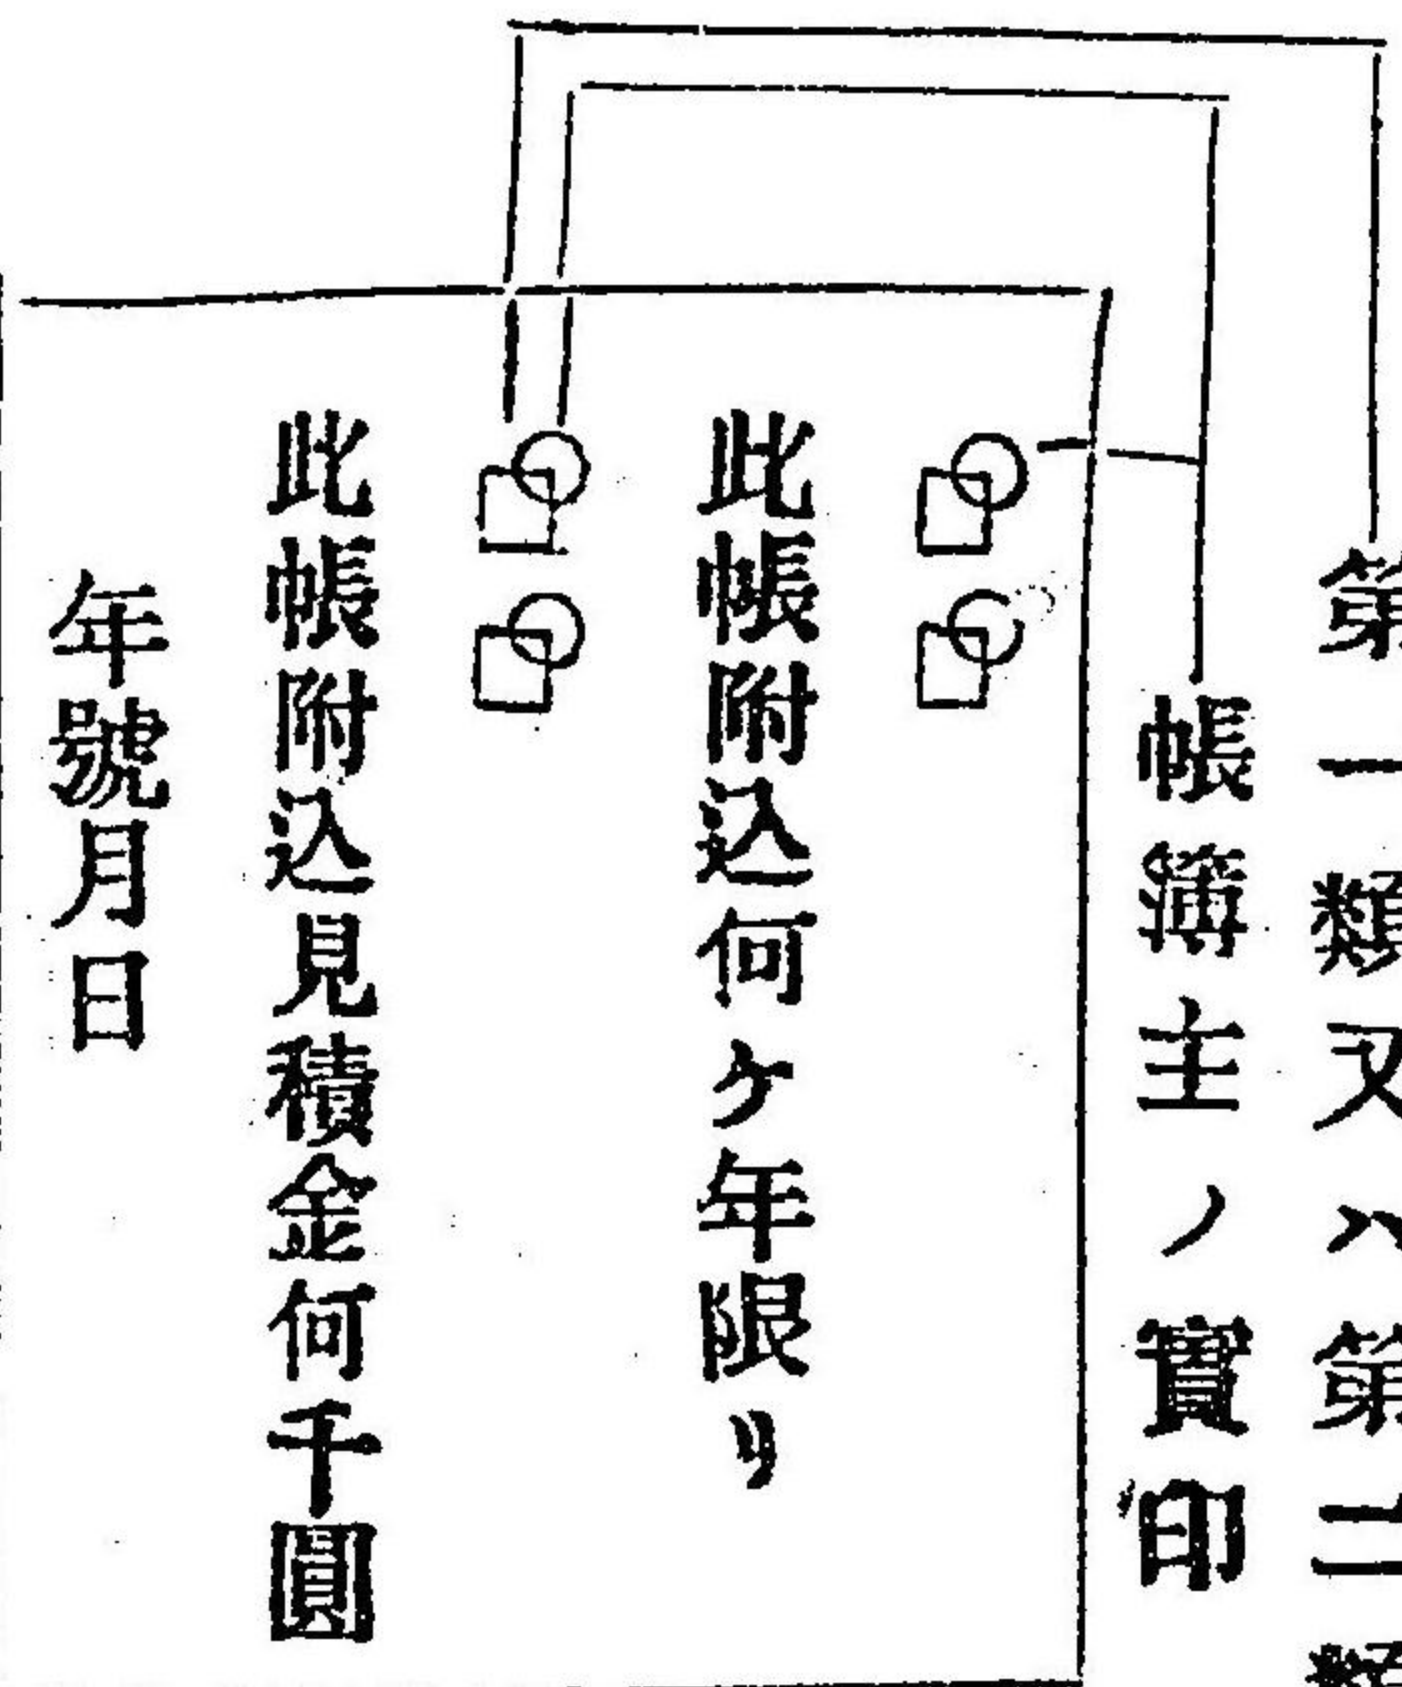 第一類又ハ第二類
帳簿主ノ實印
此帳附込何ケ年限リ
此帳附込見積金何千圓
年號月日